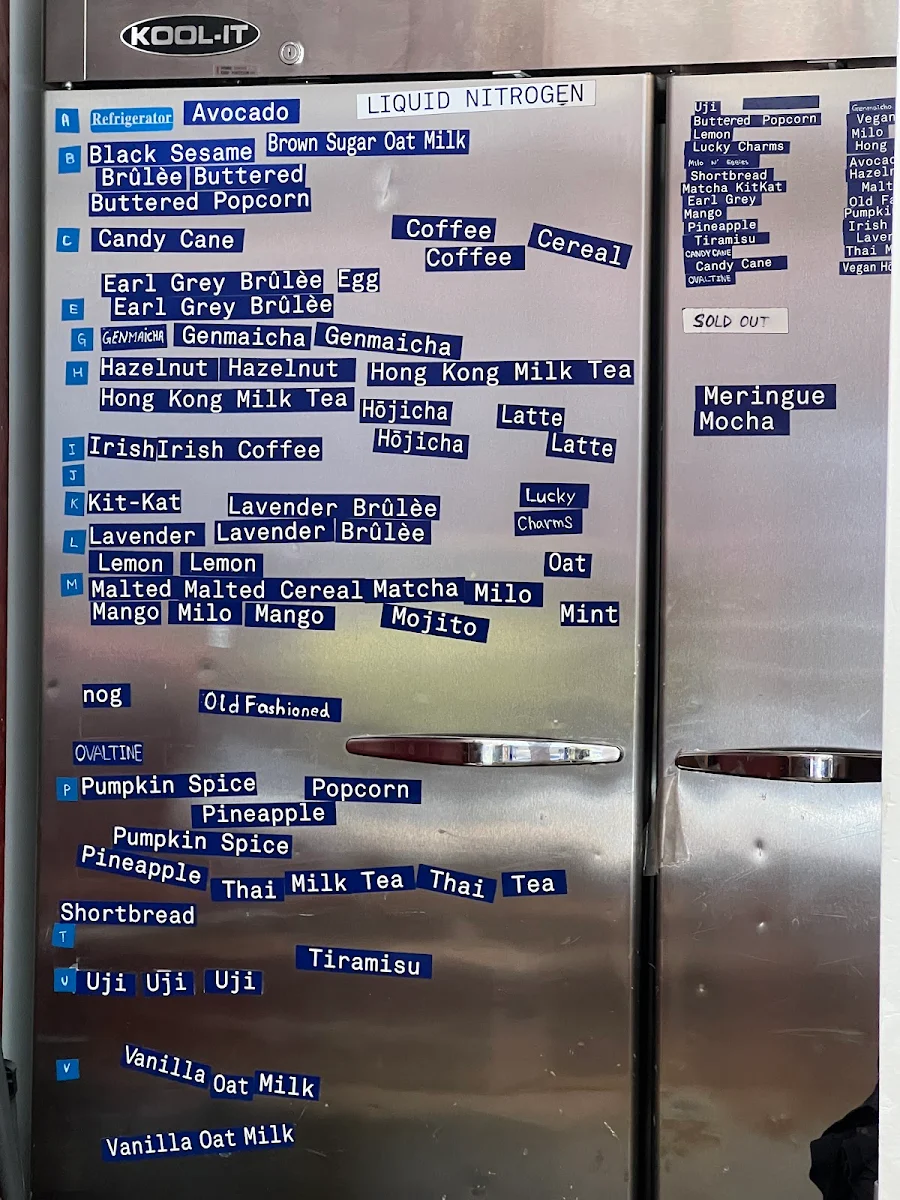 KOOL-IT
A Refrigerator Avocado LIQUID NITROGEN
B Black Sesame Brown Sugar Oat Milk
Brûlèe Buttered
Buttered Popcorn
C Candy Cane Coffee Cereal
Coffee
Earl Grey Brûlèe Egg
E Earl Grey Brûlèe
G GENMAICHA Genmaicha Genmaicha
H Hazelnut Hazelnut Hong Kong Milk Tea
Hong Kong Milk Tea Hōjicha Latte
I Irish Irish Coffee Hōjicha Latte
J
K Kit-Kat Lavender Brûlèe Lucky
L Lavender Lavender Brûlèe Charms
Lemon Lemon Oat
M Malted Malted Cereal Matcha Milo
Mango Milo Mango Mojito Mint
nog Old Fashioned
OVALTINE
P Pumpkin Spice Popcorn
Pineapple
Pumpkin Spice
Pineapple Thai Milk Tea Thai Tea
Shortbread
T
Tiramisu
U Uji Uji Uji
V Vanilla Oat Milk
Vanilla Oat Milk
Uji
Buttered Popcorn
Lemon
Lucky Charms
Shortbread
Matcha KitKat
Earl Grey
Mango
Pineapple
Tiramisu
CANDY CANE
Candy Cane
OVALTINE
Genmaicha
Vegan
Milo
Hong
SOLD OUT
Meringue
Mocha